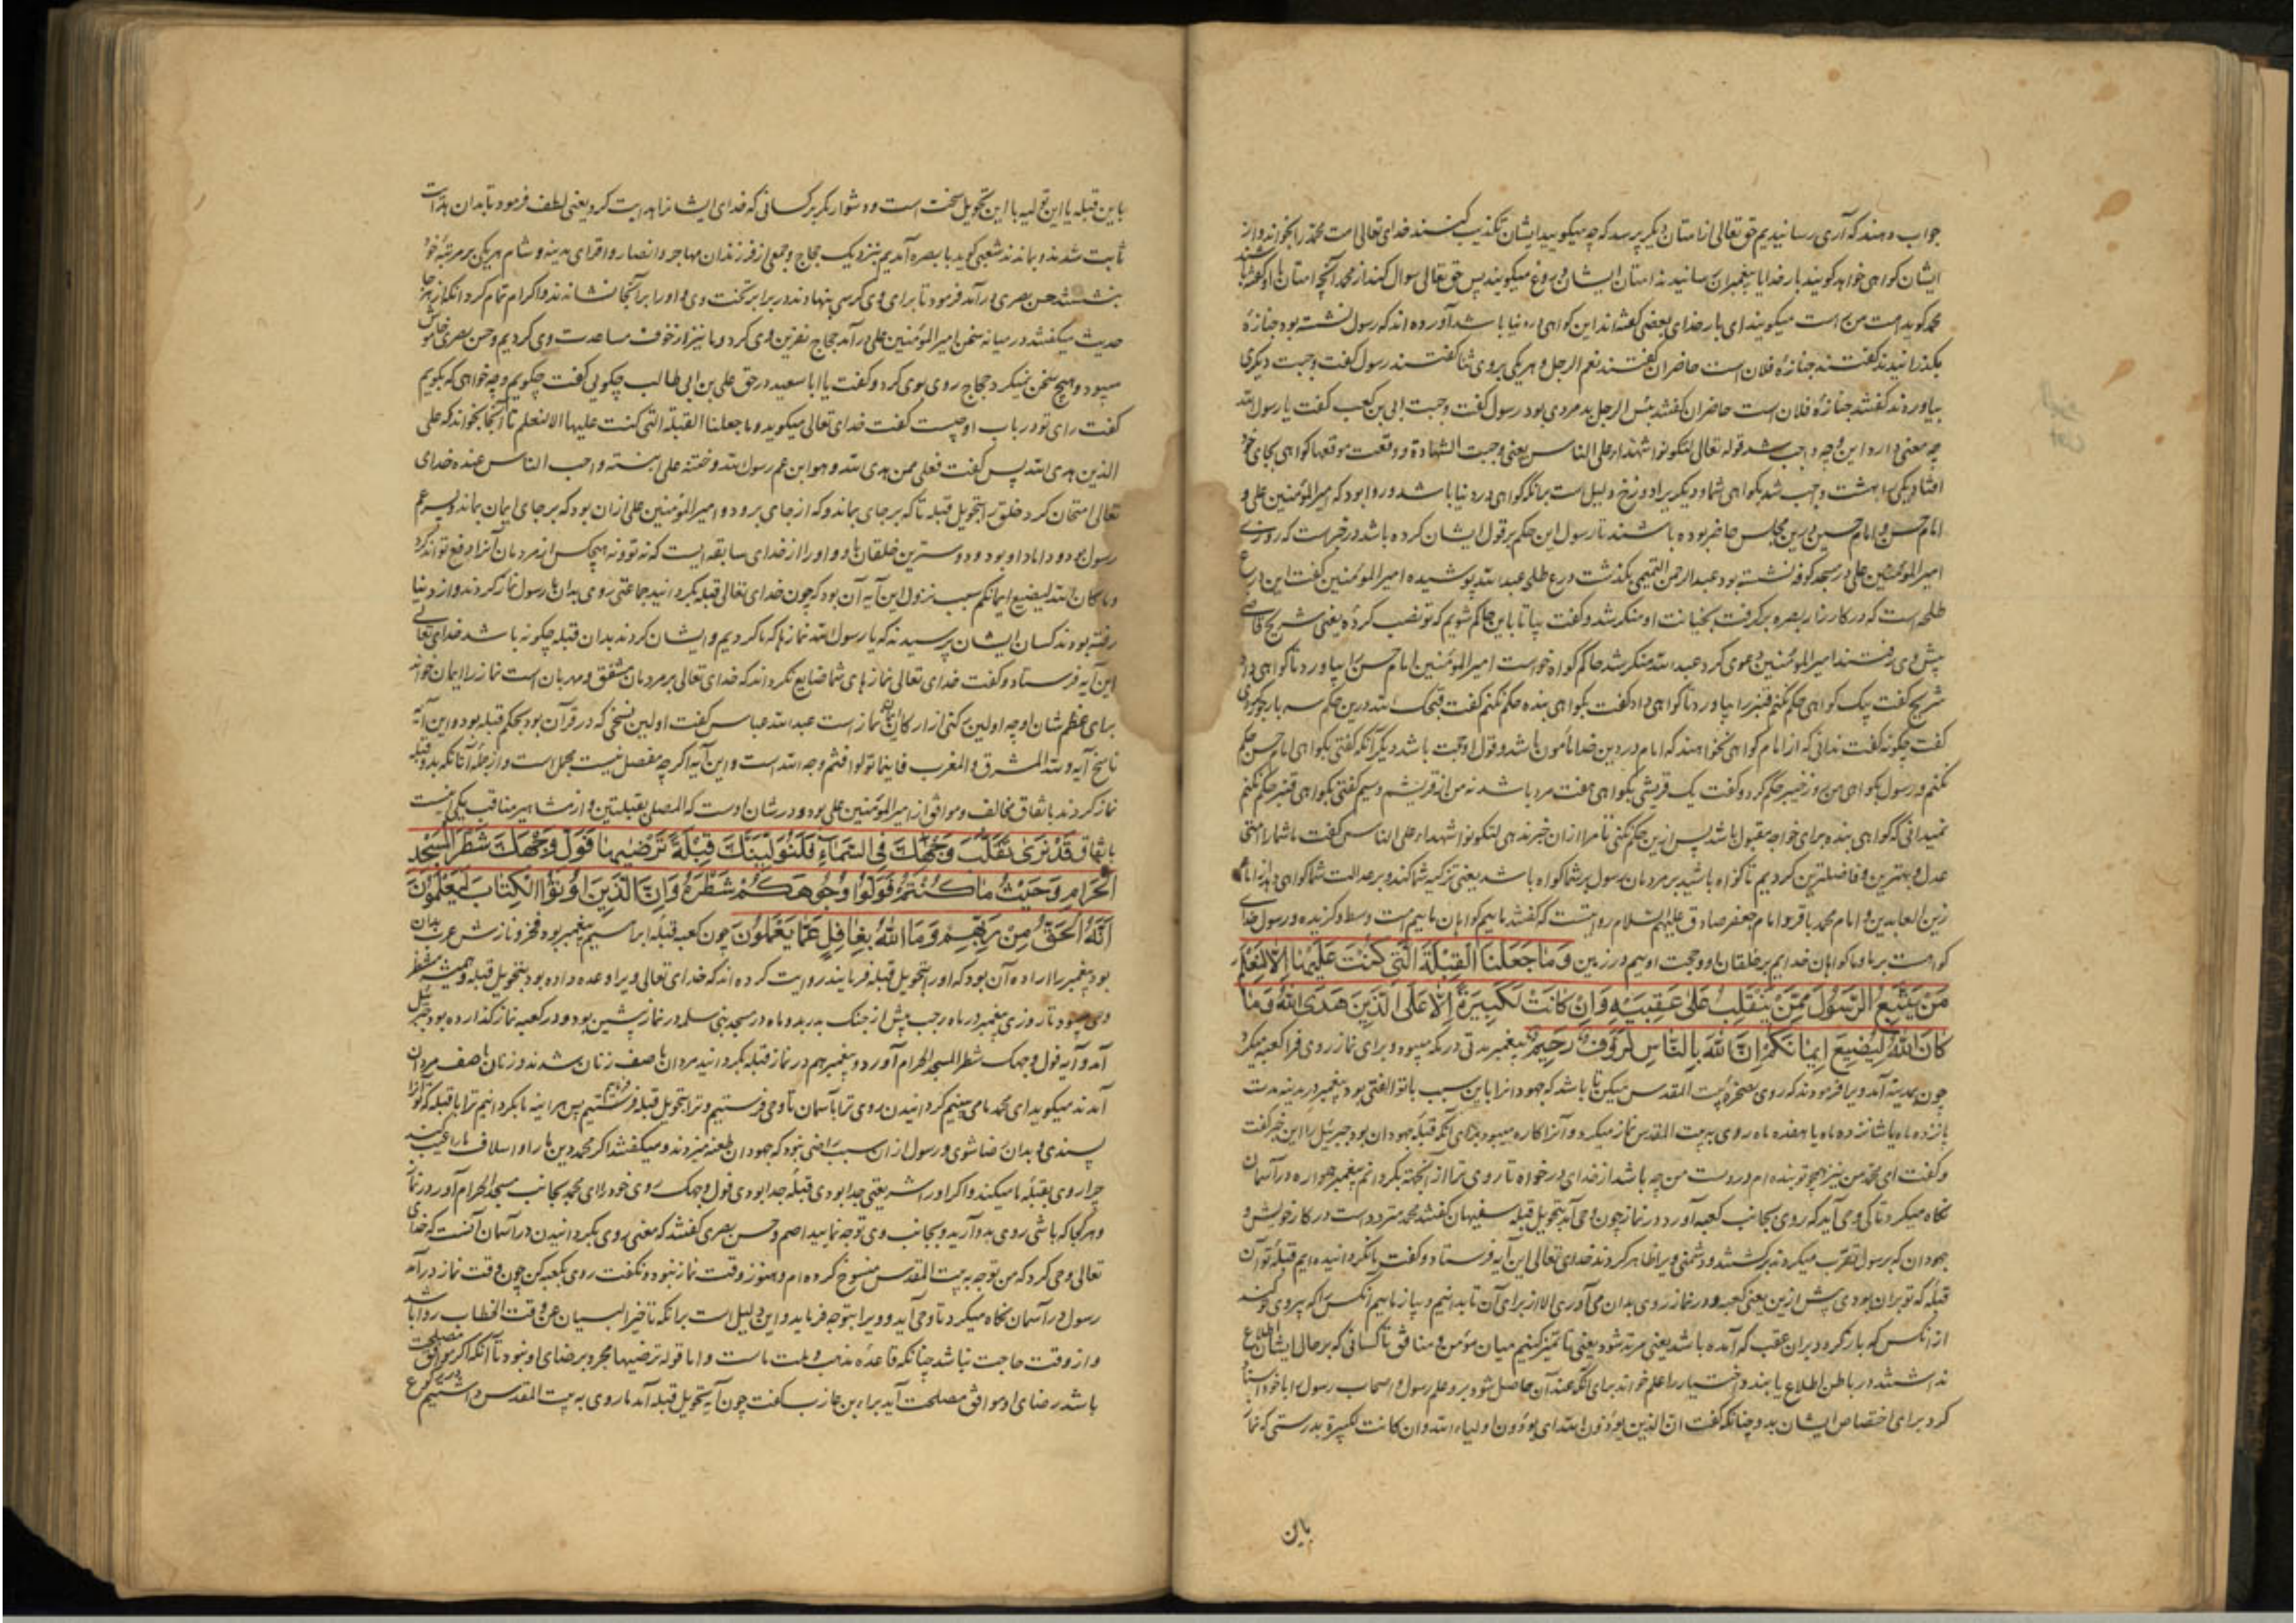 جواب دهند که آری رسانیدیم حق تعالی از امتان دیگر پرسد که چه میگویید ایشان تکذیب کنند خدای تعالی امت محمد را بخواند و از
ایشان گواهی خواهد گویند بار خدایا پیغمبران رسانیدند امتان ایشان دروغ میگویند پس حق تعالی سوال کند از محمد آنچه امتان او گفته باشند
محمد گوید امت من است میگویند ای بار خدای بعضی گفته‌اند این گواهی در دنیا باشد آورده اند که رسول نشسته بود جنازهٔ
بگذرانیدند گفتند جنازهٔ فلان است حاضران گفتند نعم الرجل و هر یکی بر وی ثنا گفتند رسول گفت وجبت دیگری
بیاوردند گفتند جنازهٔ فلان است حاضران گفتند بئس الرجل بد مردی بود رسول گفت وجبت ابی بن کعب گفت یا رسول الله
چه معنی دارد این چه واجب شد قوله تعالی لتکونوا شهداء علی الناس یعنی وجبت الشهادة و وقعت موقعها گواهی بجای خود
افتاد یکی را بهشت واجب شد بگواهی شما و دیگر را دوزخ دلیل است برانکه گواهی در دنیا باشد و روا بود که امیرالمؤمنین علی و
امام حسن و امام حسین درین مجلس حاضر بوده باشند تا رسول این حکم بر قول ایشان کرده باشد در خبرست که روزی
امیرالمؤمنین علی در مسجد کوفه نشسته بود عبدالرحمن التمیمی بگذشت درع طلحه عبد الله پوشیده امیرالمؤمنین گفت این درع
طلحه است که در کارزار بصره برگرفت بخیانت او منکر شد و گفت بیا تا با این حاکم شویم که تو نصب کردهٔ یعنی شریح قاضی
پیش وی رفتند امیرالمؤمنین دعوی کرد عبدالله منکر شد حاکم گواه خواست امیرالمؤمنین امام حسن را بیاورد تا گواهی داد
شریح گفت بیک گواهی حکم نکنم قنبر را بیاورد تا گواهی داد گفت بگواهی بنده حکم نکنم گفت درین حکم سه بار جور کردی
گفت چگونه گفت ندانی که از امام گواهی نخواهند که امام در دین خدا مأمون باشد و قول او حجت باشد دیگر آنکه گفتی بگواهی امام حسن حکم
نکنم و رسول بگواهی من روز خیبر حکم کرد و گفت یک قریشی بگواهی هفت مرد باشد نه من از قریشم و سیم گفتی بگواهی قنبر حکم نکنم
نمیدانی که گواهی بنده برای خواجه مقبول باشد پس ازین حکم نکنی تا مرا ازان خبر ندهی لتکونوا شهداء علی الناس گفت ما شما را امتی
عدل و بهترین و فاضلترین کردیم تا گواه باشید بر مردمان و رسول بر شما گواه باشد یعنی تزکیه شما کند و بر عدالت شما گواهی دهد از امام
زین العابدین و امام محمد باقر و امام جعفر صادق علیهم السلام روایتست که گفتند ماییم گواهان ماییم امت وسط و گزیده و رسول خدای
گواهست بر ما و ما گواهان خداییم بر خلقان او و حجت اوییم در زمین وَمَا جَعَلْنَا الْقِبْلَةَ الَّتِی کُنْتَ عَلَیْهَا اِلَّا لِنَعْلَمَ
مَنْ یَتَّبِعُ الرَّسُولَ مِمَّنْ یَنْقَلِبُ عَلٰی عَقِبَیْهِ وَاِنْ کَانَتْ لَکَبِیرَةً اِلَّا عَلَی الَّذِینَ هَدَی اللهُ وَمَا
کَانَ اللهُ لِیُضِیعَ اِیمَانَکُمْ اِنَّ اللهَ بِالنَّاسِ لَرَؤُفٌ رَحِیمٌ پیغمبر مدتی در مکه میبود و برای نماز روی فرا کعبه میکرد
چون بمدینه آمد ویرا فرمودند که روی بصخرهٔ بیت المقدس میکن تا باشد که جهودانرا باین سبب با تو الفتی بود پیغمبر در مدینه مدت
پانزده ماه یا شانزده ماه یا هفده ماه روی به بیت المقدس نماز میکرد و آنرا کاره میبود برای آنکه قبلهٔ جهودان بود جبرئیل را این خبر گفت
و گفت ای محمد من نیز همچو تو بنده ام در دست من چه باشد از خدای درخواه تا روی ترا از اینجهت بگرداند پیغمبر همواره در آسمان
نگاه میکرد تا کی وحی آید که روی بجانب کعبه آورد در نماز چون وحی آمد بتحویل قبله سفیهان گفتند محمد متردد است در کار خویش و
جهودان که برسول تقرب میکردند برگشتند و دشمنی ویرا ظاهر کردند خدای تعالی این آیه فرستاد و گفت ما نگردانیده ایم قبلهٔ تو آن
قبله که تو بران بودی پیش ازین یعنی کعبه و در نماز روی بدان می آوری الا از برای آن تا بدانیم و باز نماییم آنکس را که پیروی تو کند
از آنکس که باز گردد بران عقب که آمده باشد یعنی مرتد شود یعنی تا تمیز کنیم میان مؤمن و منافق تا کسانی که بر حال ایشان اطلاع
نداشتند در باطن اطلاع یابند و اختیار را علم خواند برای آنکه عند آن حاصل شود بر و علم رسول و اصحاب رسول را با خود اسناد
کرد برای اختصاص ایشان بدو چنانکه گفت ان الذین یؤذون الله ای یؤذون اولیاء الله و ان کانت لکبیرة بدرستی که نماز
باین
باین قبله یا این تولیه یا این تحویل سخت است و دشوار مگر بر کسانی که خدای ایشانرا هدایت کرد یعنی لطف فرمود تا بدان هدایت
ثابت شدند و بماندند شعبی گوید با بصره آمدیم بنزدیک حجاج و جمعی از فرزندان مهاجر و انصار و اقرای مدینه و شام هر یکی بر مرتبهٔ خود
بنشستند حسن بصری درآمد فرمود تا برای وی کرسی بنهادند در برابر تخت وی و او را بر آنجا نشاندند و اکرام تمام کرد آنگه از هر جا
حدیث میگفتند در میانه سخن امیرالمؤمنین علی درآمد حجاج نفرین وی کرد و ما نیز از خوف مساعدت وی کردیم و حسن بصری خاموش
میبود و هیچ سخن نمیکرد حجاج روی بوی کرد و گفت یا ابا سعید در حق علی بن ابی طالب چگویی گفت چگویم و چه خواهی که بگویم
گفت رای تو در باب او چیست گفت خدای تعالی میگوید و ما جعلنا القبلة التی کنت علیها الا لنعلم تا آنجا بخواند که علی
الذین هدی الله پس گفت فعلی ممن هدی الله و هو ابن عم رسول الله و ختنه علی ابنته و احب الناس عنده خدای
تعالی امتحان کرد خلق را بتحویل قبله تا که بر جای بماند و که از جای برود و امیرالمؤمنین علی ازان بود که بر جای ایمان بماند و پسر عم
رسول بود و داماد او بود و دوسترین خلقان باو و او را از خدای سابقه است که نه تو و نه هیچکس از مردمان آنرا دفع تواند کرد
و ما کان الله لیضیع ایمانکم سبب نزول این آیه آن بود که چون خدای تعالی قبله بگردانید جماعتی روی بدان با رسول نماز کردند و از دنیا
رفته بودند کسان ایشان پرسیدند که یا رسول الله نمازها که ما کردیم و ایشان کردند بدان قبله چگونه باشد خدای تعالی
این آیه فرستاد و گفت خدای تعالی نمازهای شما ضایع نکرداند که خدای تعالی بر مردمان مشفق و مهربان است نماز را ایمان خواند
برای عظم شان او چه اولین رکنی از ارکان ایمان نماز است عبد الله عباس گفت اولین نسخی که در قرآن بود بحکم قبله بود و این آیه
ناسخ آیه و لله المشرق و المغرب فاینما تولوا فثم وجه الله است و این آیه اگر چه مفصل نیست مجمل است و از جمله آنانکه بدو قبله
نماز کردند باتفاق مخالف و موافق از امیرالمؤمنین علی بود و در شان اوست که المصلی بقبلتین و از مشاهیر مناقب یکی اینست
باتفاق قَدْ نَرٰی تَقَلُّبَ وَجْهِكَ فِی السَّمَاءِ فَلَنُوَلِّیَنَّكَ قِبْلَةً تَرْضٰیهَا فَوَلِّ وَجْهَكَ شَطْرَ الْمَسْجِدِ
الْحَرَامِ وَحَیْثُ مَا کُنْتُمْ فَوَلُّوا وُجُوهَکُمْ شَطْرَهُ وَاِنَّ الَّذِینَ اُوتُوا الْکِتَابَ لَیَعْلَمُونَ
اَنَّهُ الْحَقُّ مِنْ رَبِّهِمْ وَمَا اللهُ بِغَافِلٍ عَمَّا یَعْمَلُونَ چون کعبه قبلهٔ ابراهیم پیغمبر بود و فخر و نازش عرب بدان
بود پیغمبر را اراده آن بود که او را بتحویل قبله فرمایند روایت کرده اند که خدای تعالی ویرا وعده داده بود بتحویل قبله و همیشه منتظر
وحی میبود تا روزی پیغمبر در ماه رجب پیش از جنگ بدر بدو ماه در مسجد بنی سلمه در نماز پیشین بود و در کعبه نماز گذارده بود جبرئیل
آمد و آیه فول وجهک شطر المسجد الحرام آورد و پیغمبر هم در نماز قبله بگردانید مردان با صف زنان شدند و زنان با صف مردان
آمدند میگوید ای محمد ما می بینیم گردانیدن روی ترا بآسمان تا وحی فرستیم و ترا بتحویل قبله فرماییم پس هر اینه ما بگردانیم ترا با قبله که تو آنرا
پسندی و بدان رضا شوی و رسول از آن سبب راضی نبود که جهودان طعنه میزدند و میگفتند اگر محمد دین ما را و اسلاف ما را عیب میکند
چرا روی بقبلهٔ ما میکند و اگر او را شریعتی جدا بودی قبلهٔ جدا بودی فول وجهک روی خود را ای محمد بجانب مسجد الحرام آور در نماز
و هر کجا که باشی روی بدو آرید و بجانب وی توجه نمایید اصم و حسن بصری گفتند که معنی روی بگردانیدن در آسمان آنست که خدای
تعالی وحی کرد که من توجه به بیت المقدس منسوخ کرده ام و هنوز وقت نماز نبود و نگفت روی بکعبه کن چون وقت نماز درآمد
رسول در آسمان نگاه میکرد تا وحی آید و ویرا بتوجه فرماید و این دلیل است برانکه تاخیر البیان عن وقت الخطاب روا باشد
و از وقت حاجت نباشد چنانکه قاعده مذهب و ملت ماست و اما قوله ترضیها مجرد برضای او نبود تا آنکه اگر موافق مصلحت
باشد رضای او موافق مصلحت آید براء بن عازب گفت چون آیه تحویل قبله آمد ما روی به بیت المقدس داشتیم در رکوع